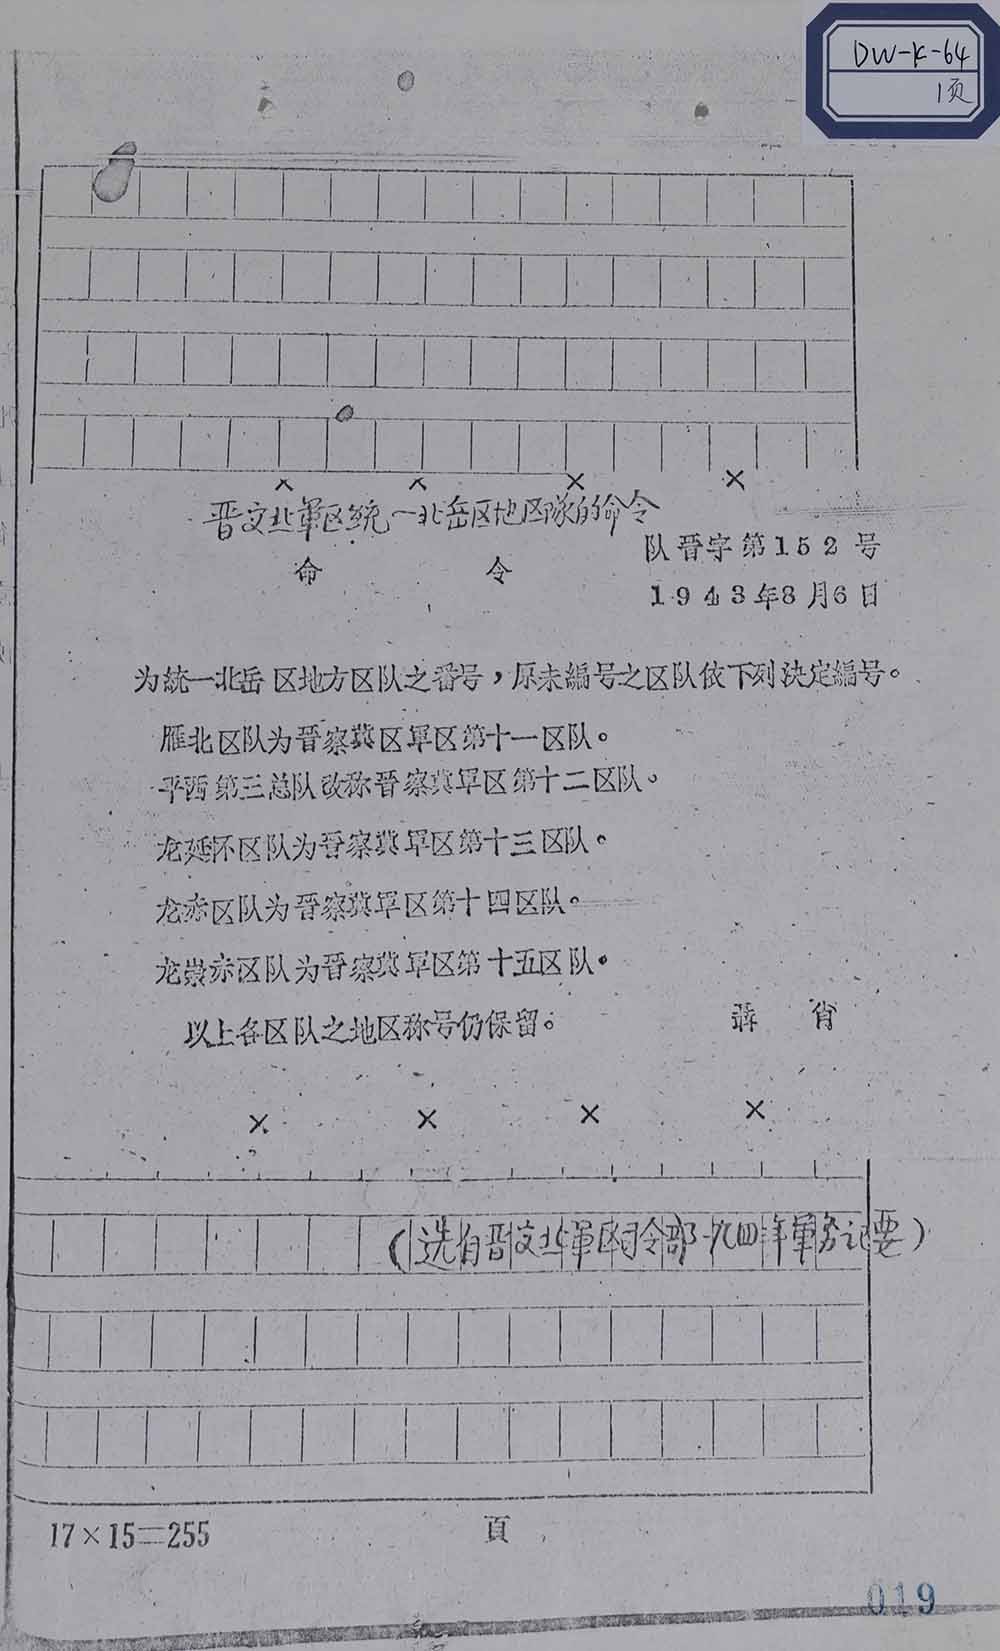 DW-K-64
1页
× × × ×
晋文北軍区統一北岳区地区隊的命令
队晋字第152号
命 令
1943年8月6日
为統一北岳区地方区队之番号，原未編号之区队依下列決定編号。
雁北区队为晋察冀区軍区第十一区队。
平西第三总队改称晋察冀軍区第十二区队。
龙延怀区队为晋察冀軍区第十三区队。
龙赤区队为晋察冀軍区第十四区队。
龙崇赤区队为晋察冀軍区第十五区队。
以上各区队之地区称号仍保留。
肖
× × × ×
（选自晋文北軍区司令部一九四年軍务记要）
17×15=255
頁
019